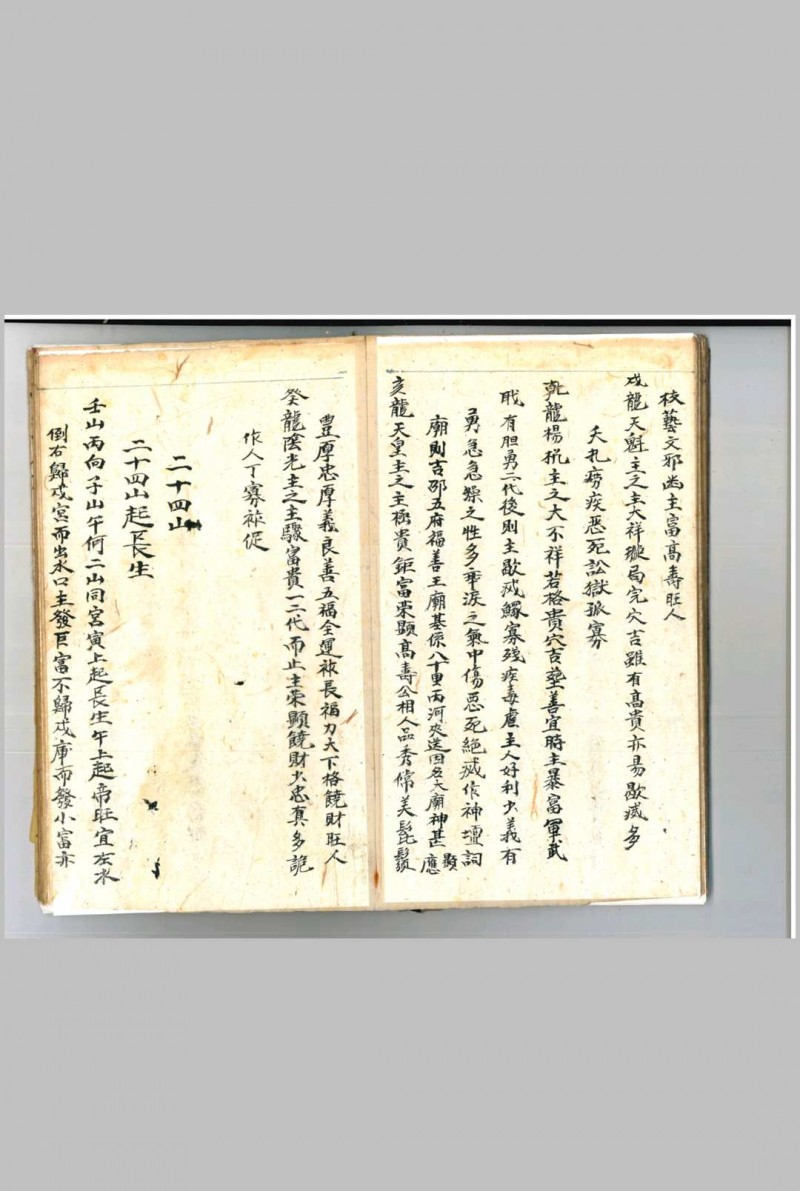 枝藝文邪幽主富高壽旺人
戌龍天魁主之主大祥璇局完穴吉雖有高貴亦易歇滅多
夭札癆疾惡死訟獄孤寡
乾龍楊主之大不祥若格貴穴吉塋善宜時主暴富軍武
職有胆勇二代後則主歇滅鰥寡殘疾毒虐主人好利少義有
勇急急燥之性多乖淚之氣中傷惡死絕滅作神壇詞
廟則吉邵五府福善王廟基係八十里丙河夾送因名大廟神甚顯應
亥龍天皇主之主極貴鉅富榮顯高壽公相人品秀偉美髭鬚
豊厚忠厚義良善五福全運祚長福力大下格饒財旺人
癸龍陰光主之主驟富貴一二代而止主榮顯饒財少忠真多詭
作人丁寡祚促
二十四山
二十四山起長生
壬山丙向子山午向二山同宮寅上起長生午上起帝旺宜左水
倒右歸戌宮而出水口主發巨富不歸戌庫而發小富亦